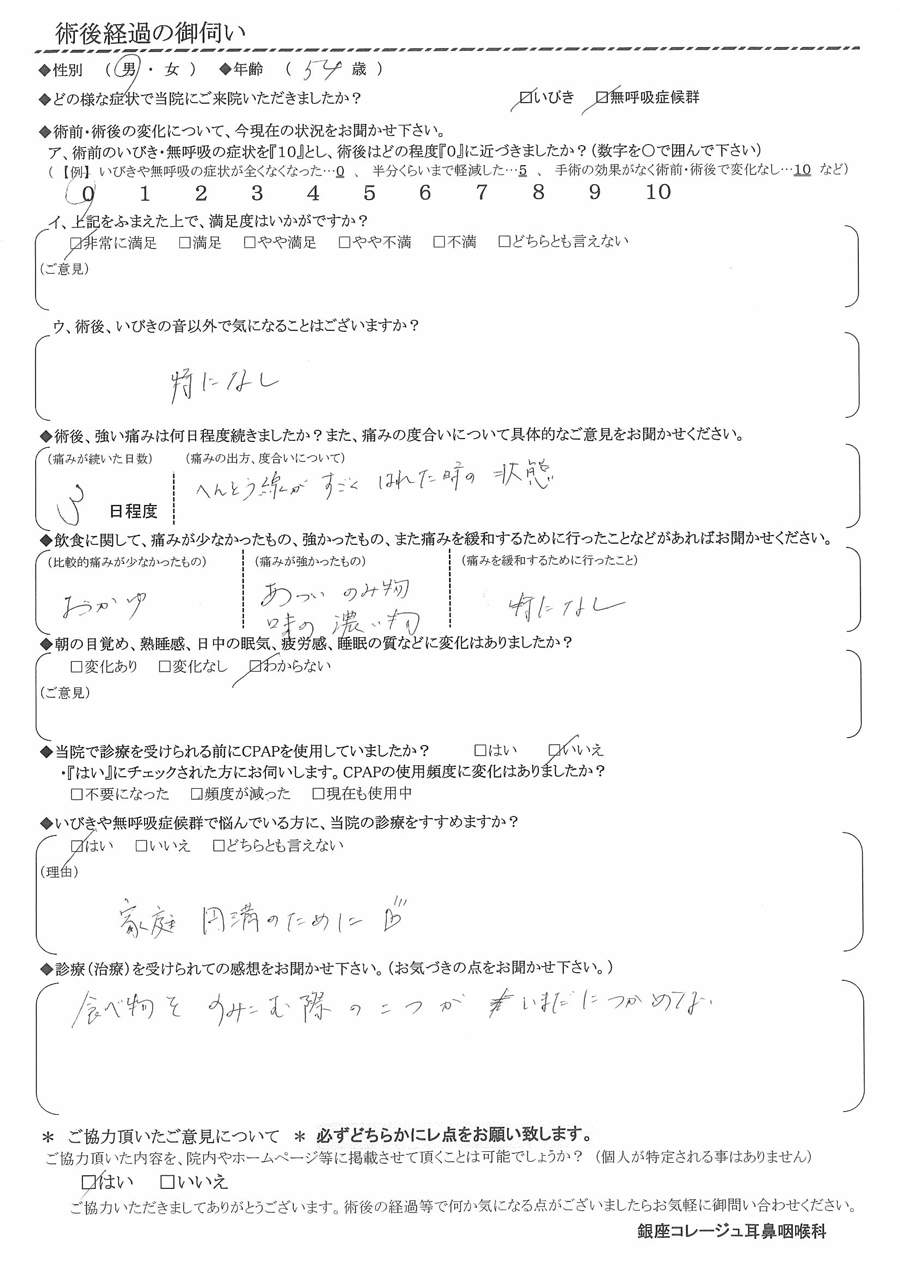 術後経過の御伺い
◆性別 （ 男 ・ 女 ） ◆年齢 （ 54 歳 ）
◆どの様な症状で当院にご来院いただきましたか？ □いびき □無呼吸症候群
◆術前・術後の変化について、今現在の状況をお聞かせ下さい。
ア、術前のいびき・無呼吸の症状を『10』とし、術後はどの程度『0』に近づきましたか？（数字を〇で囲んで下さい）
（【例】 いびきや無呼吸の症状が全くなくなった…0 、 半分くらいまで軽減した…5 、 手術の効果がなく術前・術後で変化なし…10 など）
0 1 2 3 4 5 6 7 8 9 10
イ、上記をふまえた上で、満足度はいかがですか？
□非常に満足 □満足 □やや満足 □やや不満 □不満 □どちらとも言えない
（ご意見）
ウ、術後、いびきの音以外で気になることはございますか？
特になし
◆術後、強い痛みは何日程度続きましたか？また、痛みの度合いについて具体的なご意見をお聞かせください。
（痛みが続いた日数） （痛みの出方、度合いについて）
へんとう線がすごくはれた時の状態
3 日程度
◆飲食に関して、痛みが少なかったもの、強かったもの、また痛みを緩和するために行ったことなどがあればお聞かせください。
（比較的痛みが少なかったもの） （痛みが強かったもの） （痛みを緩和するために行ったこと）
おかゆ あつい のみ物 特になし
味の 濃い物
◆朝の目覚め、熟睡感、日中の眠気、疲労感、睡眠の質などに変化はありましたか？
□変化あり □変化なし □わからない
（ご意見）
◆当院で診療を受けられる前にCPAPを使用していましたか？ □はい □いいえ
・『はい』にチェックされた方にお伺いします。CPAPの使用頻度に変化はありましたか？
□不要になった □頻度が減った □現在も使用中
◆いびきや無呼吸症候群で悩んでいる方に、当院の診療をすすめますか？
□はい □いいえ □どちらとも言えない
（理由）
家庭 円満のために
◆診療（治療）を受けられての感想をお聞かせ下さい。（お気づきの点をお聞かせ下さい。）
食べ物を のみこむ際のこつが いまだにつかめてない
＊ ご協力頂いたご意見について ＊ 必ずどちらかにレ点をお願い致します。
ご協力頂いた内容を、院内やホームページ等に掲載させて頂くことは可能でしょうか？ （個人が特定される事はありません）
□はい □いいえ
ご協力いただきましてありがとうございます。術後の経過等で何か気になる点がございましたらお気軽に御問い合わせください。
銀座コレージュ耳鼻咽喉科